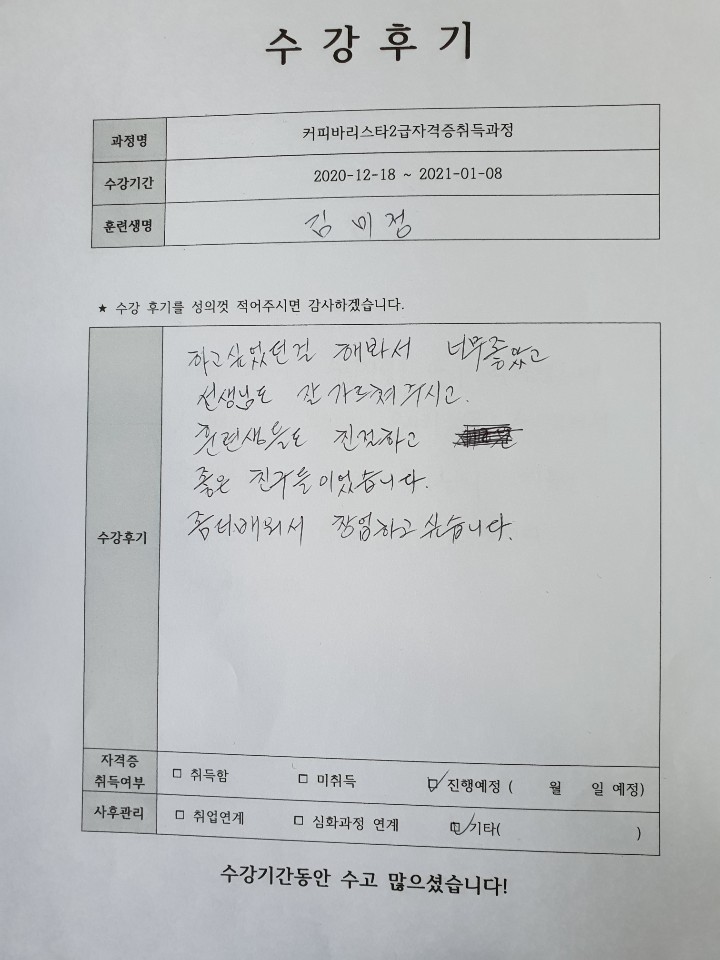 수 강 후 기
과정명 커피바리스타2급자격증취득과정
수강기간 2020-12-18 ~ 2021-01-08
훈련생명 김 미 정
★ 수강 후기를 성의껏 적어주시면 감사하겠습니다.
수강후기
하고싶었던걸 해봐서 너무좋았고
선생님도 잘 가르쳐 주시고.
훈련생들도 친절하고
좋은 친구들이었습니다.
좀더배워서 창업하고 싶습니다.
자격증 취득여부 □ 취득함 □ 미취득 ☑ 진행예정 ( 월 일 예정)
사후관리 □ 취업연계 □ 심화과정 연계 ☑ 기타( )
수강기간동안 수고 많으셨습니다!